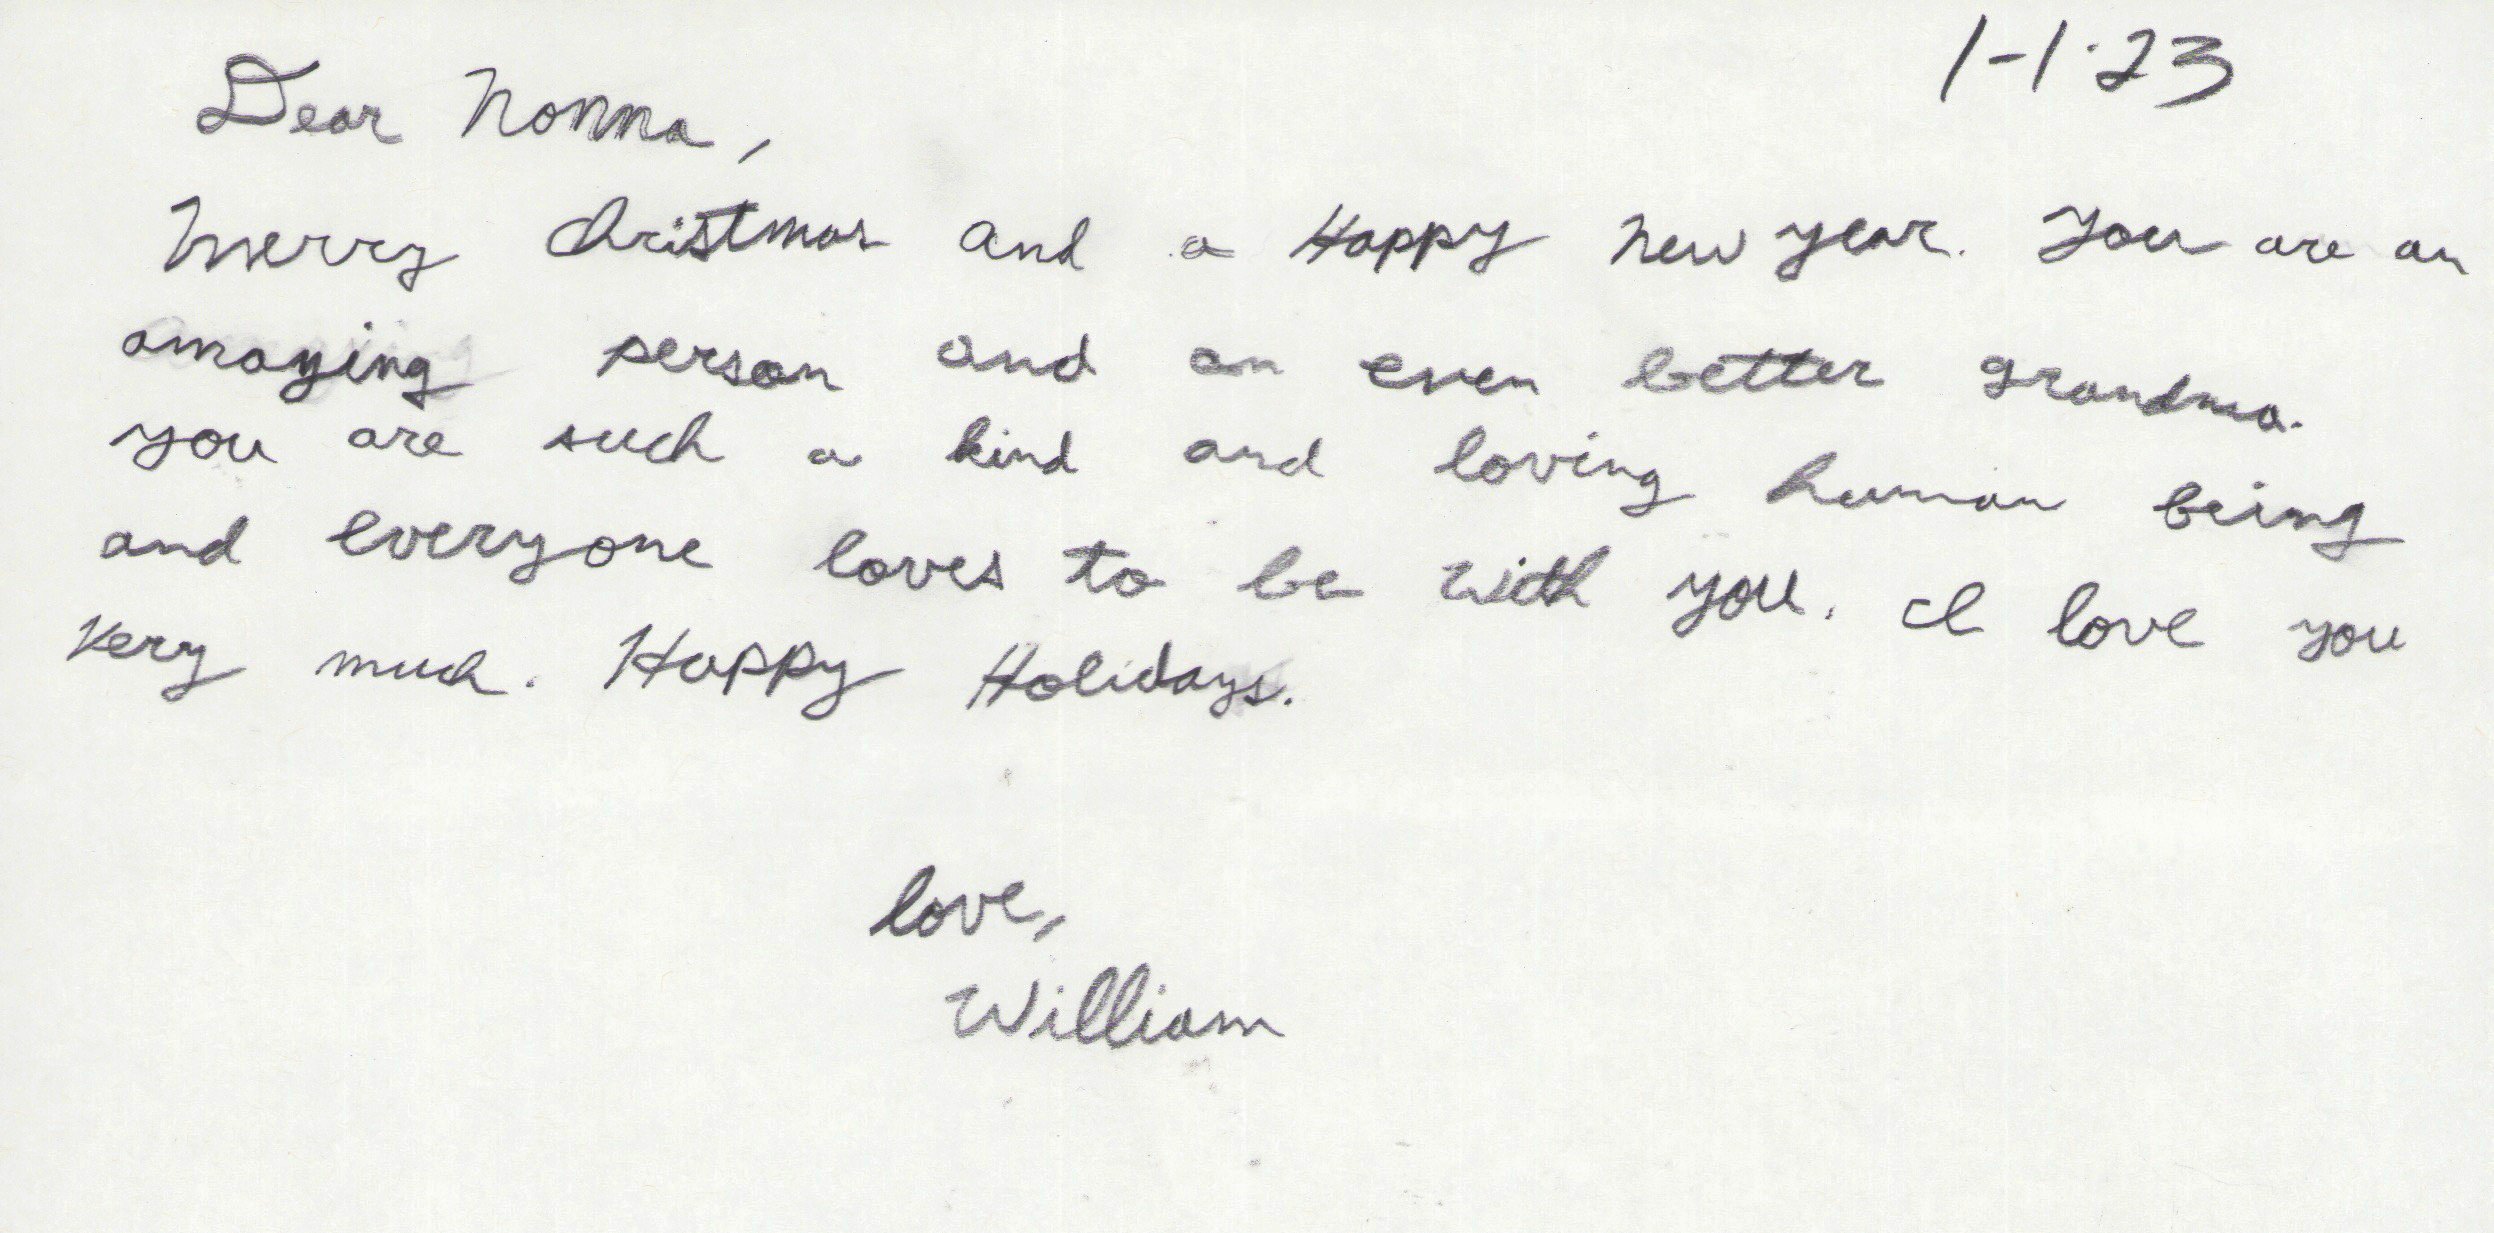 1-1-23
Dear Nonna,
Merry Christmas and a Happy New year. You are an
amazing person and an even better grandma.
you are such a kind and loving human being
and everyone loves to be with you. I love you
very much. Happy Holidays.
love,
William